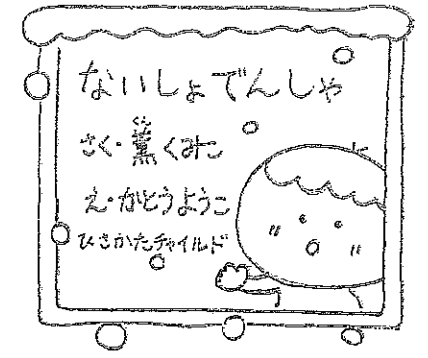 ないしょでんしゃ
さく・薫くみこ
くん
え・かとうようこ
ひさかたチャイルド